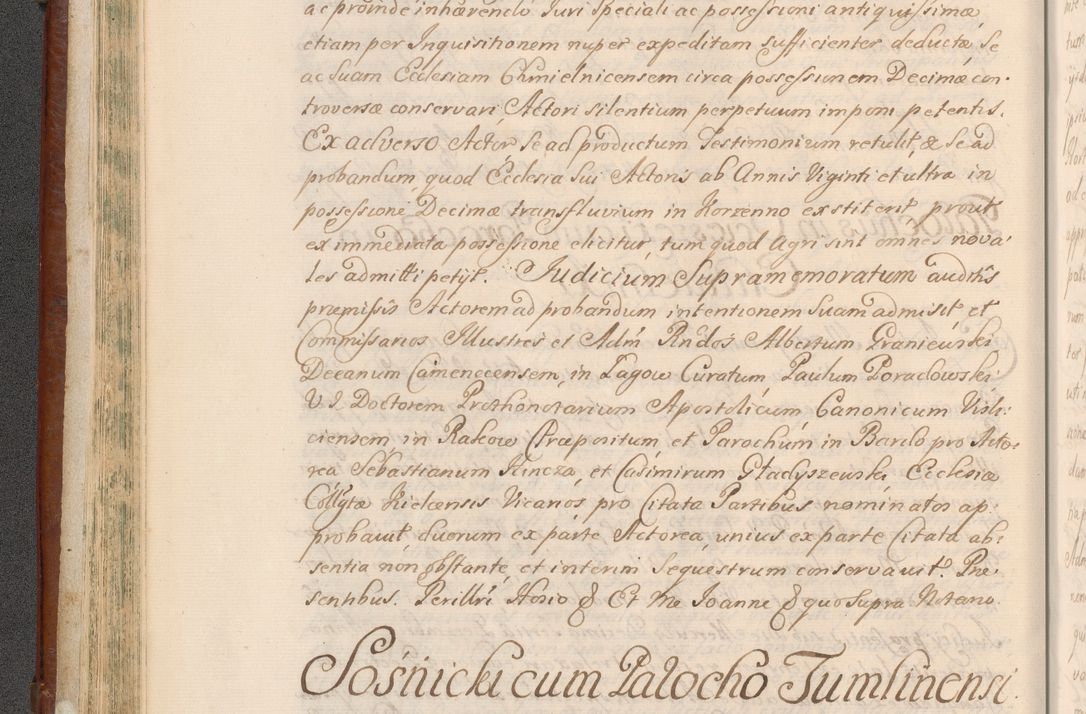 ac proinde inhærendo Juri Speciali ac possessioni antiquissimæ,
etiam per Inquisitionem nuper expeditam sufficienter deductæ Se
ac Suam Ecclesiam Chmielnicensem circa possessionem Decimæ con-
troversæ conservari, Actori silentium perpetuum imponi petentis.
Ex adverso Actor Se ad productum Testimonium retulit, & Se ad
probandum, quod Ecclesia Sui Actoris ab Annis Viginti et ultra in
possessione Decimæ transfluvium in Korzenno exstiterit, prout
ex immediata possessione elicitur, tum quod Agri sint omnes nova-
les admitti petyt. Judicium Supramemoratum auditis
præmissis Actorem ad probandum intentionem Suam admisit et
Commissarios Illustres et Adm Rndos Albertum Graniewski
Decanum Cameneensem, in Łagow Curatum Paulum Poradowski
V I Doctorem Prothonotarium Apostolicum Canonicum Visli-
ciensem in Rakow Præpositum et Parochum in Bardo pro Acto-
rea Sebastianum Kincza, et Casimirum Gładyszewski Ecclesiæ
Collgtæ Kielcensis Vicarios, pro Citata Partibus nominatos ap-
probavit, duorum ex parte Actorea, unius ex parte Citata ab-
sentia non obstante, et interim Sequestrum conservavit. Præ-
sentibus. Perillri Hosio & Et Me Joanne & quo Supra Notario.
Sośnicki cum Parocho Tumlinensi